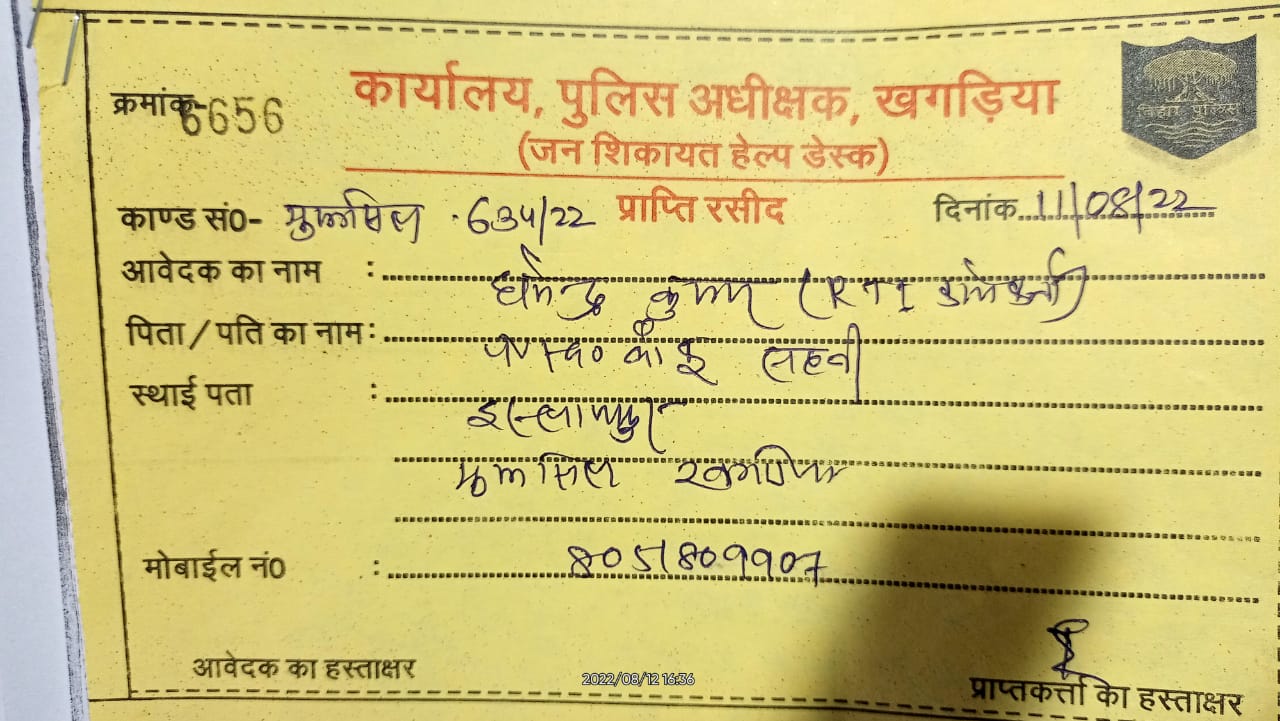 क्रमांक- 6656
कार्यालय, पुलिस अधीक्षक, खगड़िया
(जन शिकायत हेल्प डेस्क)
बिहार पुलिस
काण्ड सं0- मुफ्फसिल . 634/22 प्राप्ति रसीद दिनांक 11/08/22
आवेदक का नाम : धर्मेन्द्र कुमार (RTI कार्यकर्ता)
पिता / पति का नाम : सहनी
स्थाई पता :
मुफसिल खगड़िया
मोबाईल नं0 : 8051809907
आवेदक का हस्ताक्षर
प्राप्तकर्त्ता का हस्ताक्षर
2022/08/12 16:36